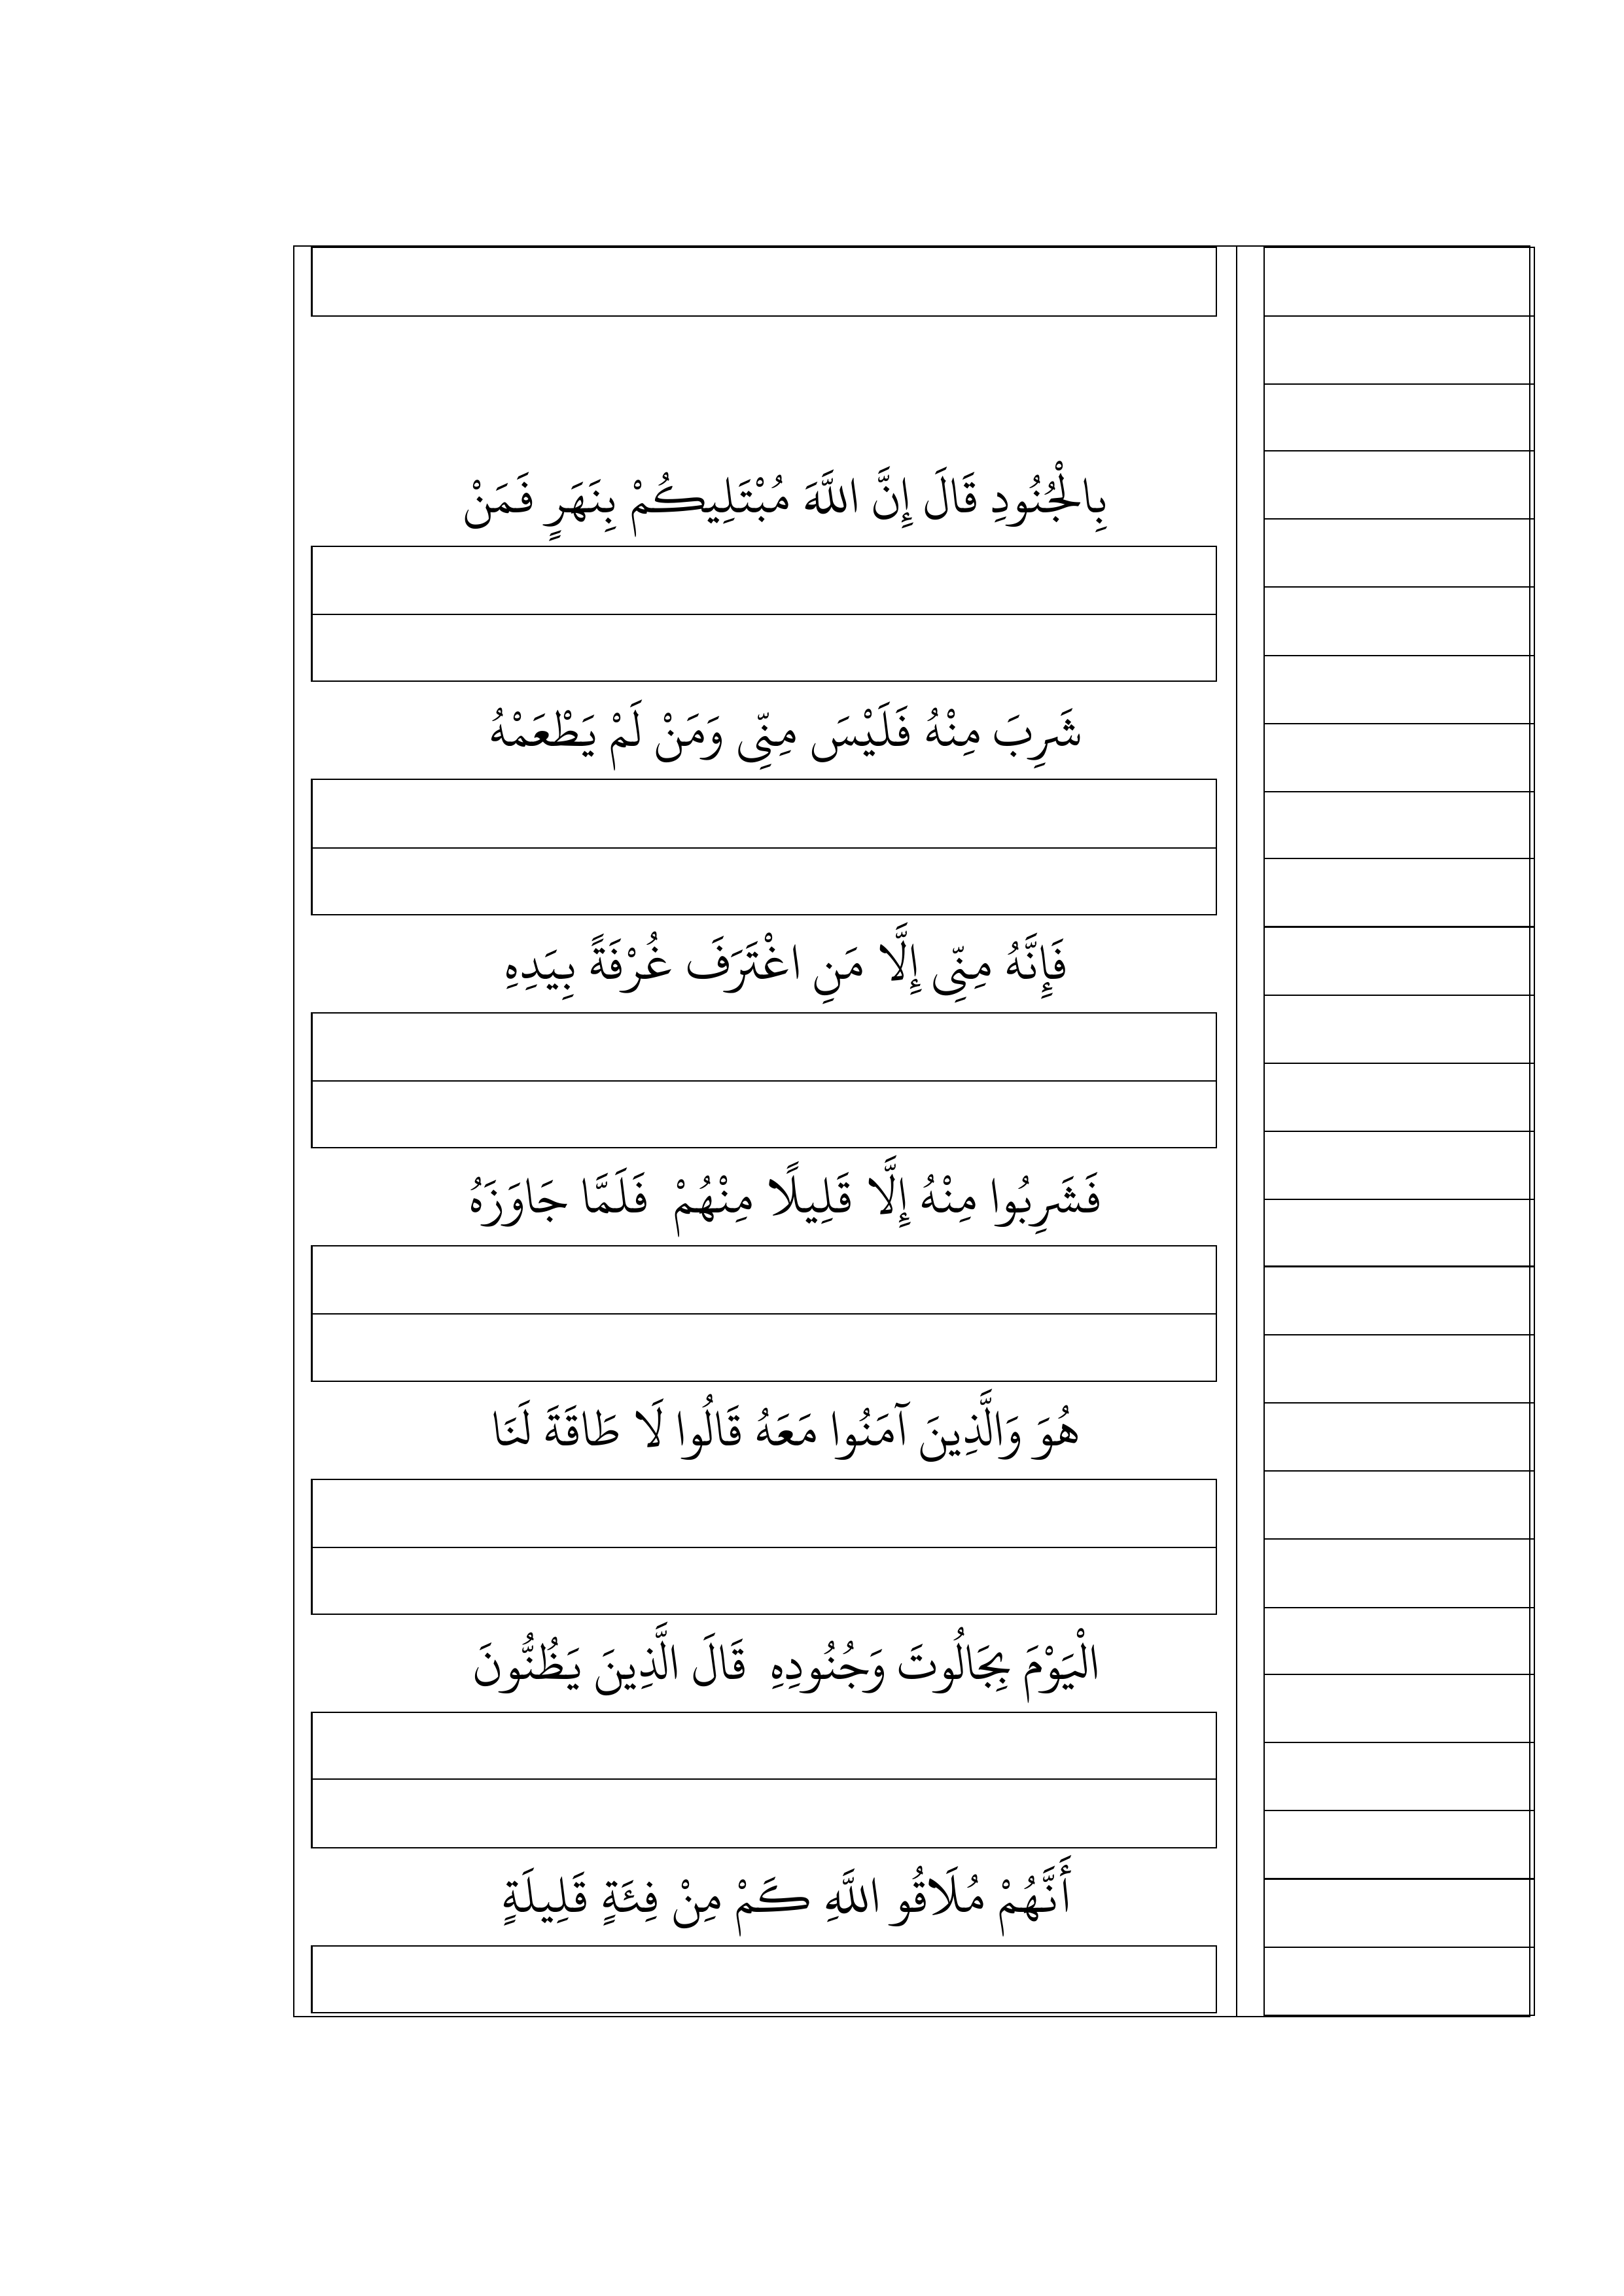 بِالْجُنُودِ قَالَ إِنَّ اللَّهَ مُبْتَلِيكُمْ بِنَهَرٍ فَمَنْ
شَرِبَ مِنْهُ فَلَيْسَ مِنِّى وَمَنْ لَمْ يَطْعَمْهُ
فَإِنَّهُ مِنِّى إِلَّا مَنِ اغْتَرَفَ غُرْفَةً بِيَدِهِ
فَشَرِبُوا مِنْهُ إِلَّا قَلِيلًا مِنْهُمْ فَلَمَّا جَاوَزَهُ
هُوَ وَالَّذِينَ آمَنُوا مَعَهُ قَالُوا لَا طَاقَةَ لَنَا
الْيَوْمَ بِجَالُوتَ وَجُنُودِهِ قَالَ الَّذِينَ يَظُنُّونَ
أَنَّهُمْ مُلَاقُو اللَّهِ كَمْ مِنْ فِئَةٍ قَلِيلَةٍ